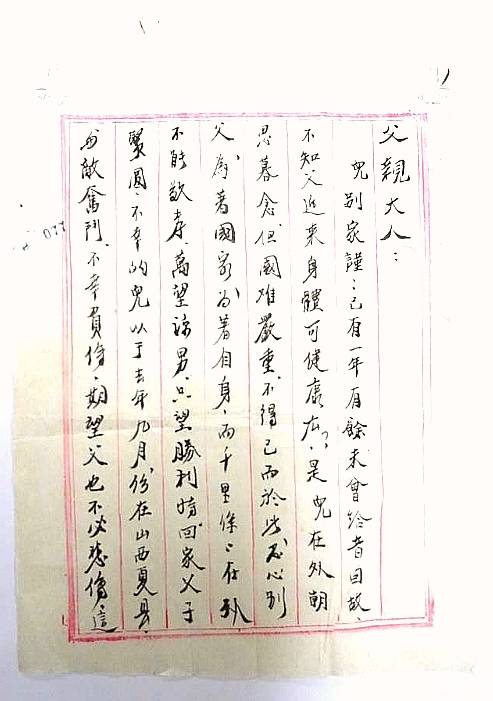 父親大人：
兒別家謹：已有一年有餘未曾給音回故、
不知父近來身體可健康否？是兒在外朝
思暮念、但國难嚴重、不得已而於此忍心别
父、為着國家為着自身、而千里條：在外
不能敬孝、萬望諒男、只望勝利時回家父子
聚圓、不幸的兒以于去年九月份在山西夏县、
與敵奮鬥、不幸負傷、期望父也不必悲傷、這
022